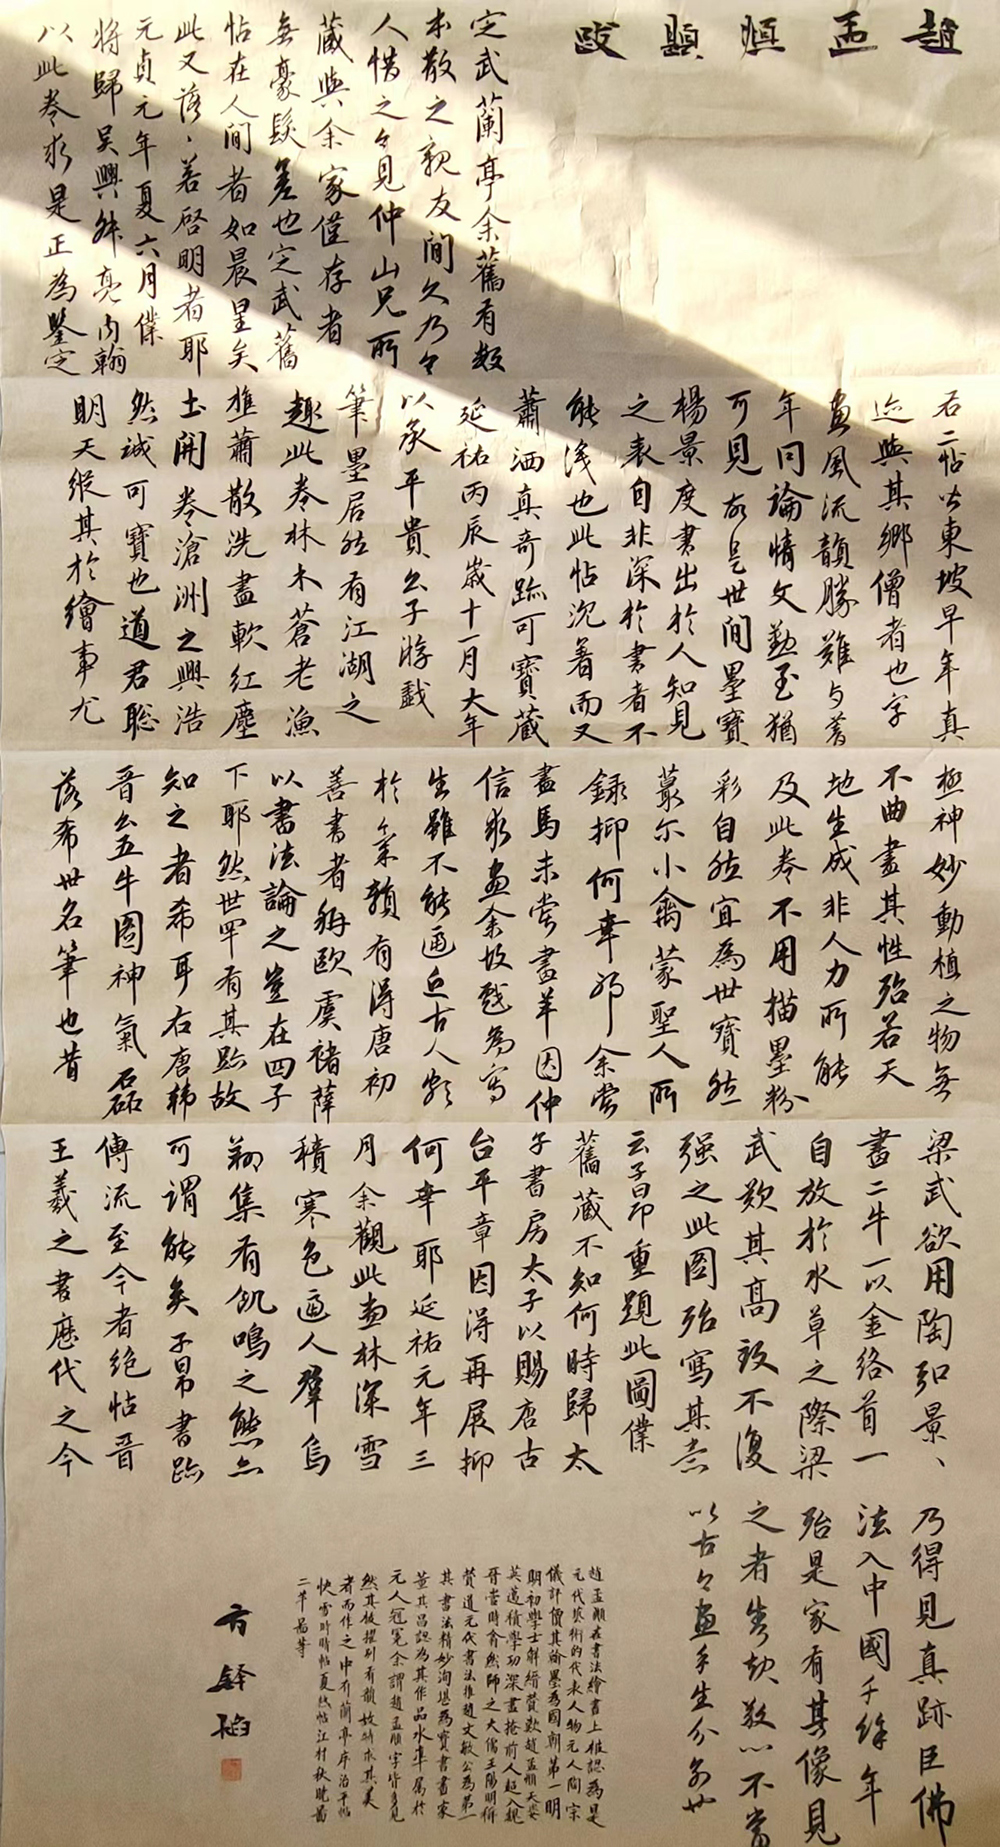 趙孟頫題跋
定武蘭亭余舊有數
本散之親友間久乃令
人惜之今見仲山兄所
藏與余家僅存者
無豪髮差也定武舊
帖在人間者如晨星矣
此又落落若啓明者耶
元貞元年夏六月僕
將歸吳興舜亮內翰
以此卷求是正為鑒定
右二帖皆東坡早年真
迹與其鄉僧者也字
畫風流韻勝難與暮
年同論情文勤至猶
可見故是世間墨寶
楊景度書出於人知見
之表自非深於書者不
能識也此帖沉著而又
蕭洒真奇跡可寶藏
延祐丙辰歲十一月大年
以承平貴公子游戲
筆墨居然有江湖之
趣此卷林木蒼老漁
樵蕭散洗盡軟紅塵
土開卷滄洲之興浩
然誠可寶也道君聰
明天縱其於繪事尤
極神妙動植之物無
不曲盡其性殆若天
地生成非人力所能
及此卷不用描墨粉
彩自然宜為世寶然
蕞尔小禽蒙聖人所
錄抑何幸耶余嘗
畫馬未嘗畫羊因仲
信求畫余故戲為寫
生雖不能逼近古人頗
於氣韻有得唐初
善書者稱歐虞褚薛
以書法論之豈在四子
下耶然世罕有其跡故
知之者希耳右唐韩
晉公五牛圖神氣磊
落希世名筆也昔
梁武欲用陶弘景、
畫二牛一以金絡首一
自放於水草之際梁
武歎其高致不復
强之此圖殆寫其意
云子昂重題此圖僕
舊藏不知何時歸太
子書房太子以賜唐古
台平章因得再展抑
何幸耶延祐元年三
月余觀此畫林深雪
積寒色逼人羣烏
翔集有飢鳴之態亦
可謂能矣子昂書跡
傳流至今者絶帖晉
王羲之書歷代之今
乃得見真跡臣佛
法入中國千餘年
殆是家有其像見
之者生敬心不當
以古今畫手生分別也
趙孟頫在書法繪畫上推認為是
元代藝術的代表人物元人間宗
儀評價其翰墨為國朝第一明
明初學士解縉贊歎趙孟頫天姿
英邁積學功深盡掩前人超入魏
晉當時翕然師之大儒王陽明稱
贊道元代書法推趙文敏公為第一
其書法精妙洵堪為寶書畫家
董其昌認為其作品水準屬於
元人冠冕余謂趙孟頫字皆多見
然其披擢別有韻故特求其美
者而作之中有蘭亭序洛平帖
快雪時晴帖夏熱帖江村秋曉圖
二羊圖等
方鐸